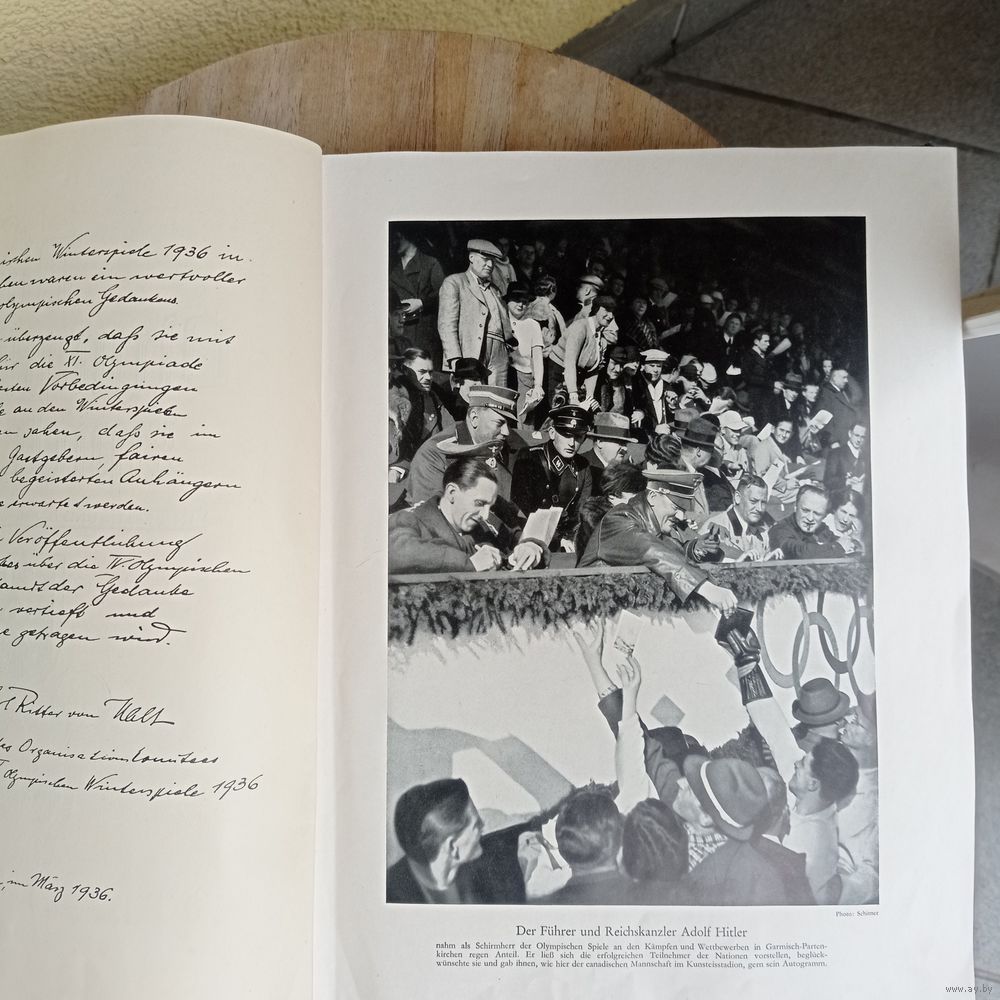 ischen Winterspiele 1936 in
ben waren ein wertvoller
olympischen Gedankens.
überzeugt, daß sie mit
für die XI. Olympiade
Vorbedingungen
an den Winterspielen
sahen, daß sie im
Gastgebern, fairen
begeisterten Anhängern
erwartet werden.
Veröffentlichung
über die IV. Olympischen
der Gedanke
vertieft und
getragen wird.
Ritter von Halt
des Organisationskomitees
Olympischen Winterspiele 1936
im März 1936.
Photo: Schirner
Der Führer und Reichskanzler Adolf Hitler
nahm als Schirmherr der Olympischen Spiele an den Kämpfen und Wettbewerben in Garmisch-Parten-
kirchen regen Anteil. Er ließ sich die erfolgreichen Teilnehmer der Nationen vorstellen, beglück-
wünschte sie und gab ihnen, wie hier der canadischen Mannschaft im Kunsteisstadion, gern sein Autogramm.
www.ay.by